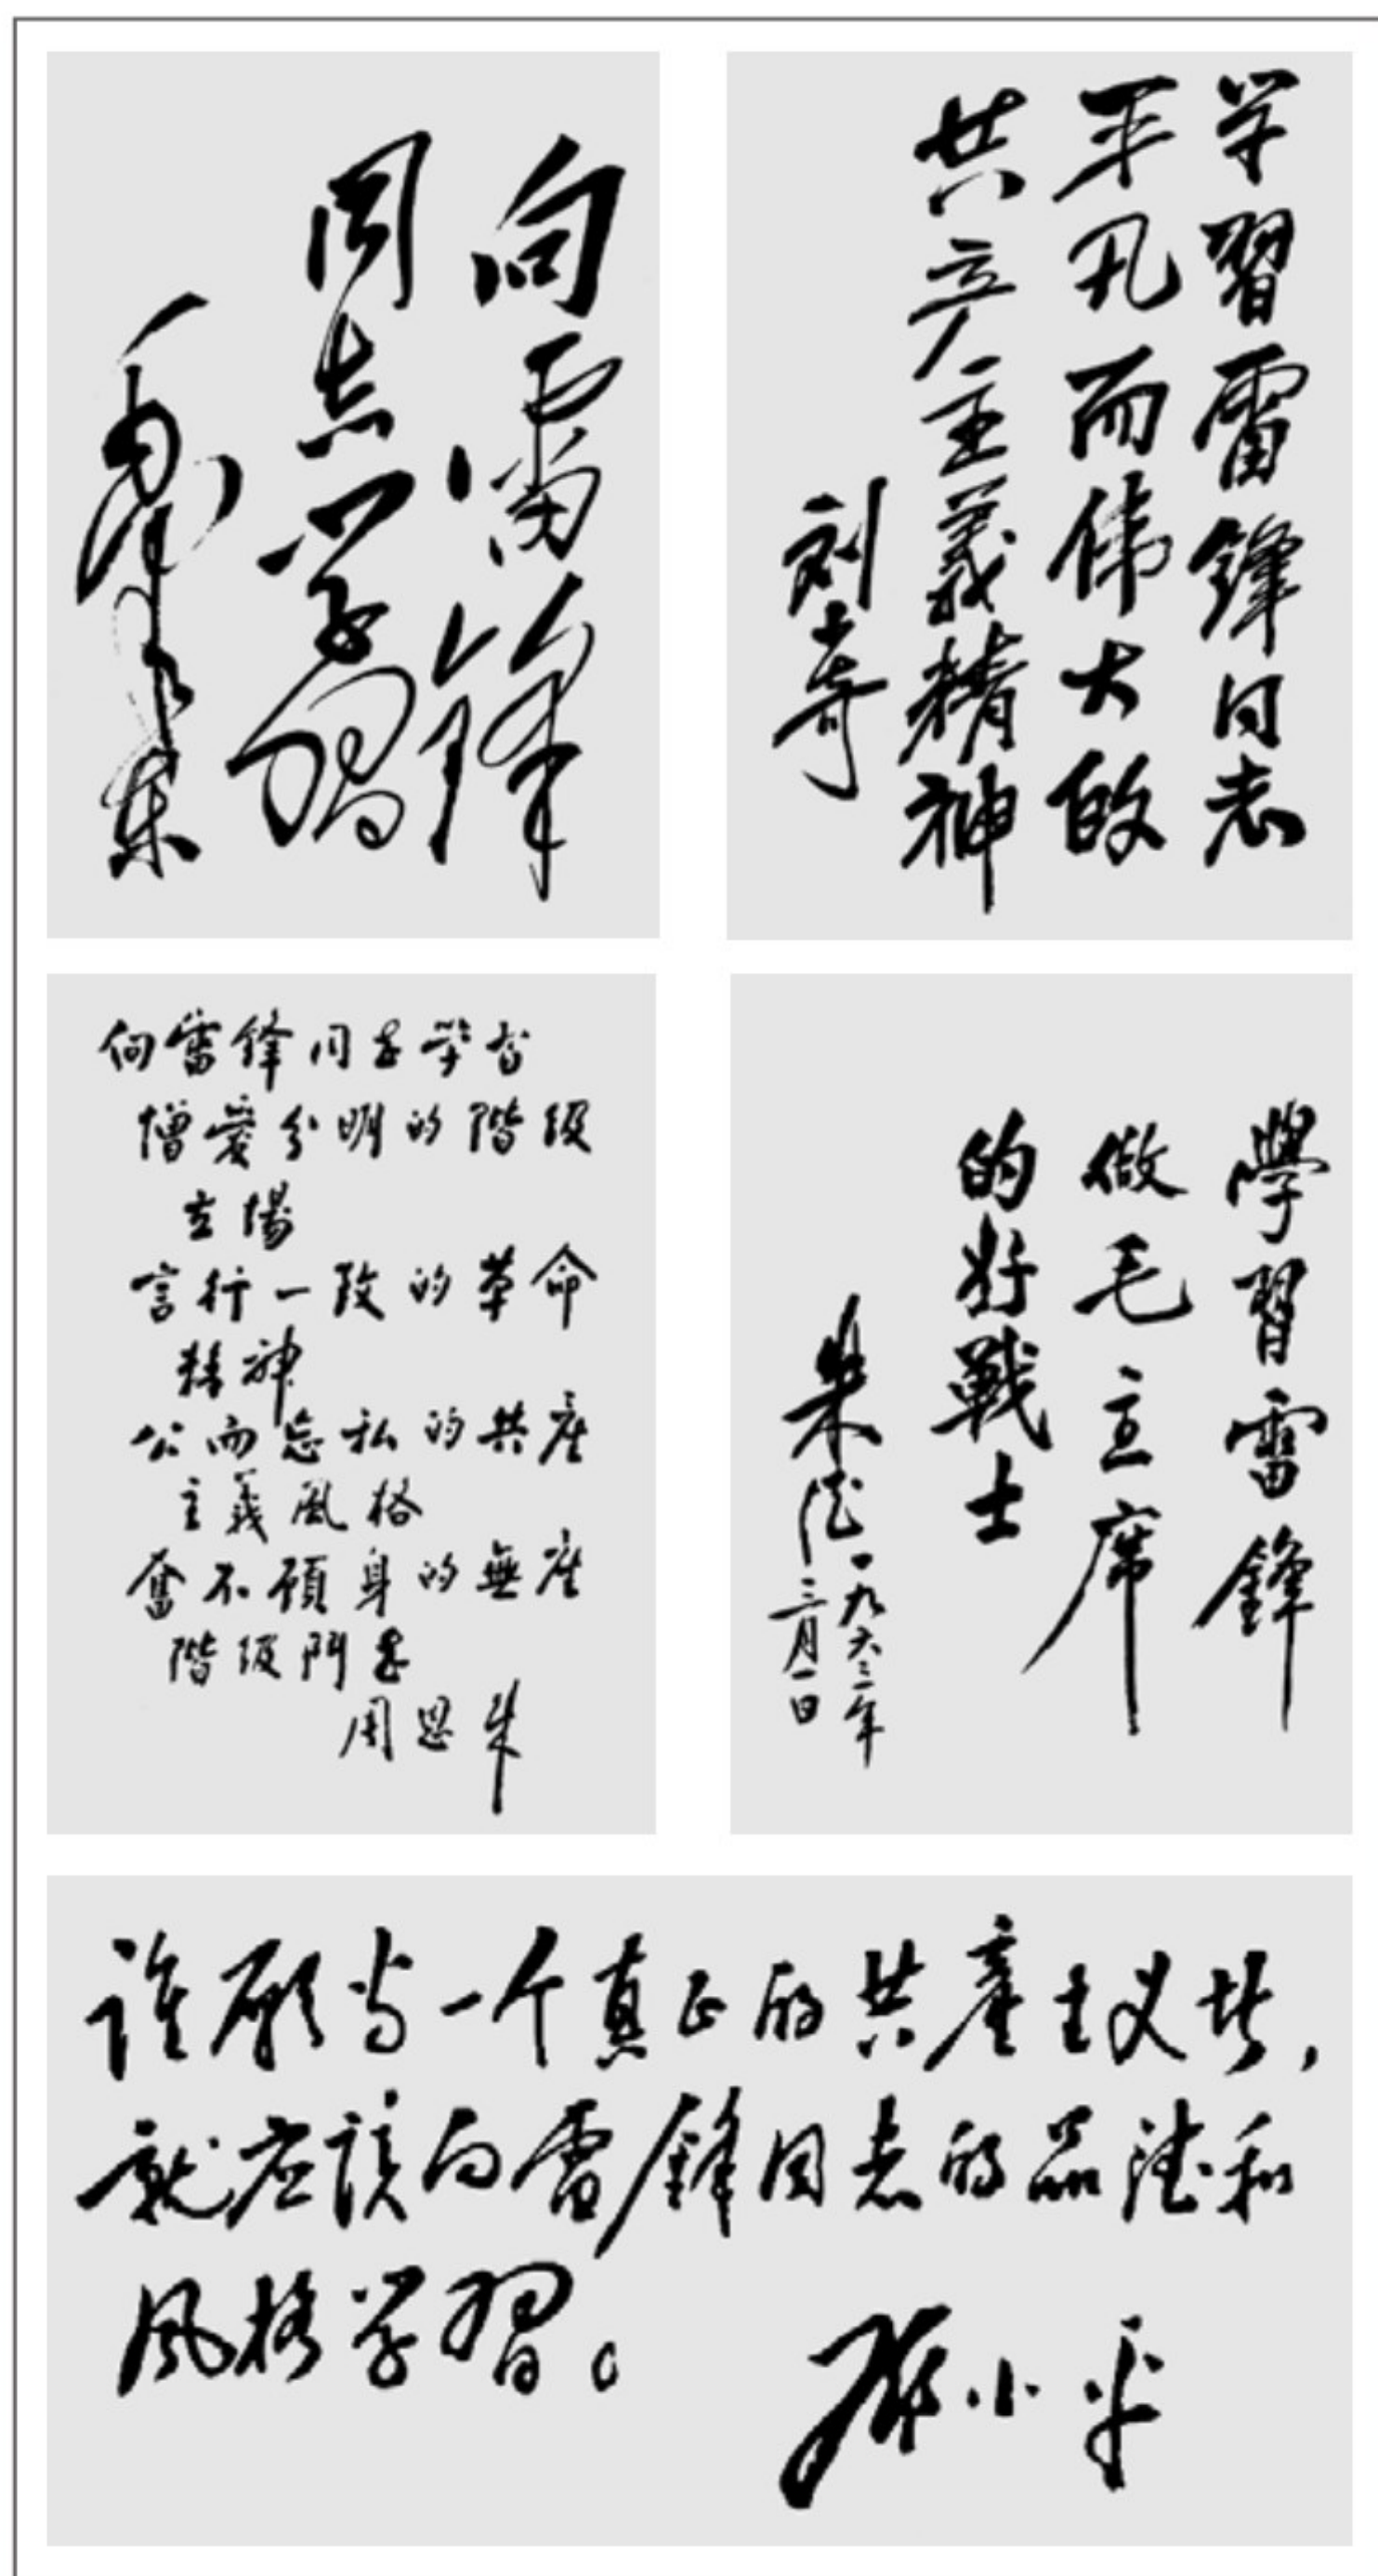 向雷锋
同志学习
毛泽东
学習雷鋒同志
平凡而伟大的
共产主義精神
刘少奇
向雷鋒同志学習
憎愛分明的階級
立場
言行一致的革命
精神
公而忘私的共産
主義風格
奮不顧身的無産
階級鬥志
周恩来
學習雷鋒
做毛主席
的好戰士
朱德
一九六三年
三月一日
谁愿当一个真正的共產主义者，
就应该向雷鋒同志的品德和
风格学習。
邓小平